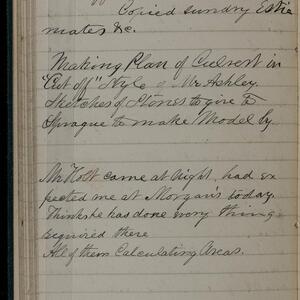 Copied sundry Esti
mates &c.
Making Plan of Culvert in
"Cut off" Style of Mr Ashley.
Sketches of Stones to give to
Sprague to make Model by
Mr Holt came at night, had ex
pected me at Morgan's today.
Thinks he has done every thing
required there
All of them Calculating Areas.